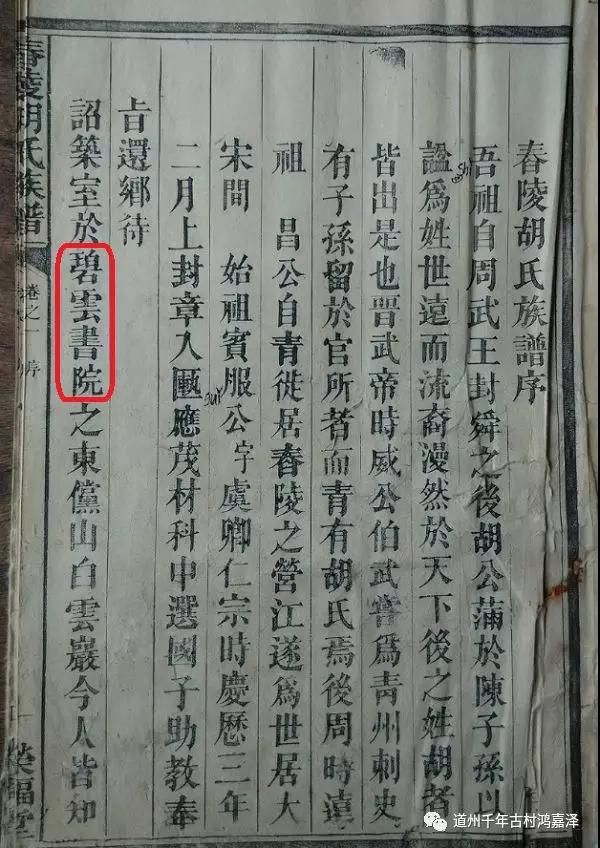 舂陵胡氏族譜序
吾祖自周武王封舜之後胡公滿於陳子孫以
諡爲姓世遠而流裔漫然於天下後之姓胡者
皆出是也晉武帝時威公伯武嘗爲靑州刺史
有子孫留於官所者而青有胡氏焉後周時遠
祖 昌公自青徙居舂陵之營江遂爲世居大
宋間 始祖賓服公字虞卿仁宗時慶歷三年
二月上封章入匭應茂材科中選國子助教奉
旨還鄉待
詔築室於碧雲書院之東儻山白雲巖今人皆知
舂陵胡氏族譜
卷之一 序
榮福堂
shi
gui
道州千年古村鸿嘉泽